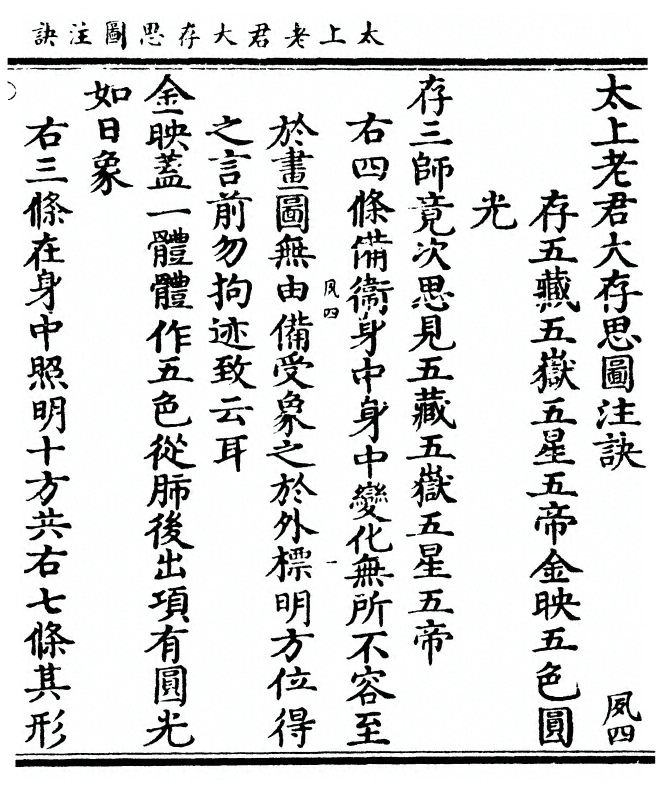 太上老君大存思圖注訣
太上老君大存思圖注訣
夙四
存五藏五嶽五星五帝金映五色圓
光
存三師竟次思見五藏五嶽五星五帝
右四條備衞身中身中變化無所不容至
夙四
一
於畫圖無由備受象之於外標明方位得
之言前勿拘迹致云耳
金映蓋一體體作五色從肺後出項有圓光
如日象
右三條在身中照明十方共右七條其形